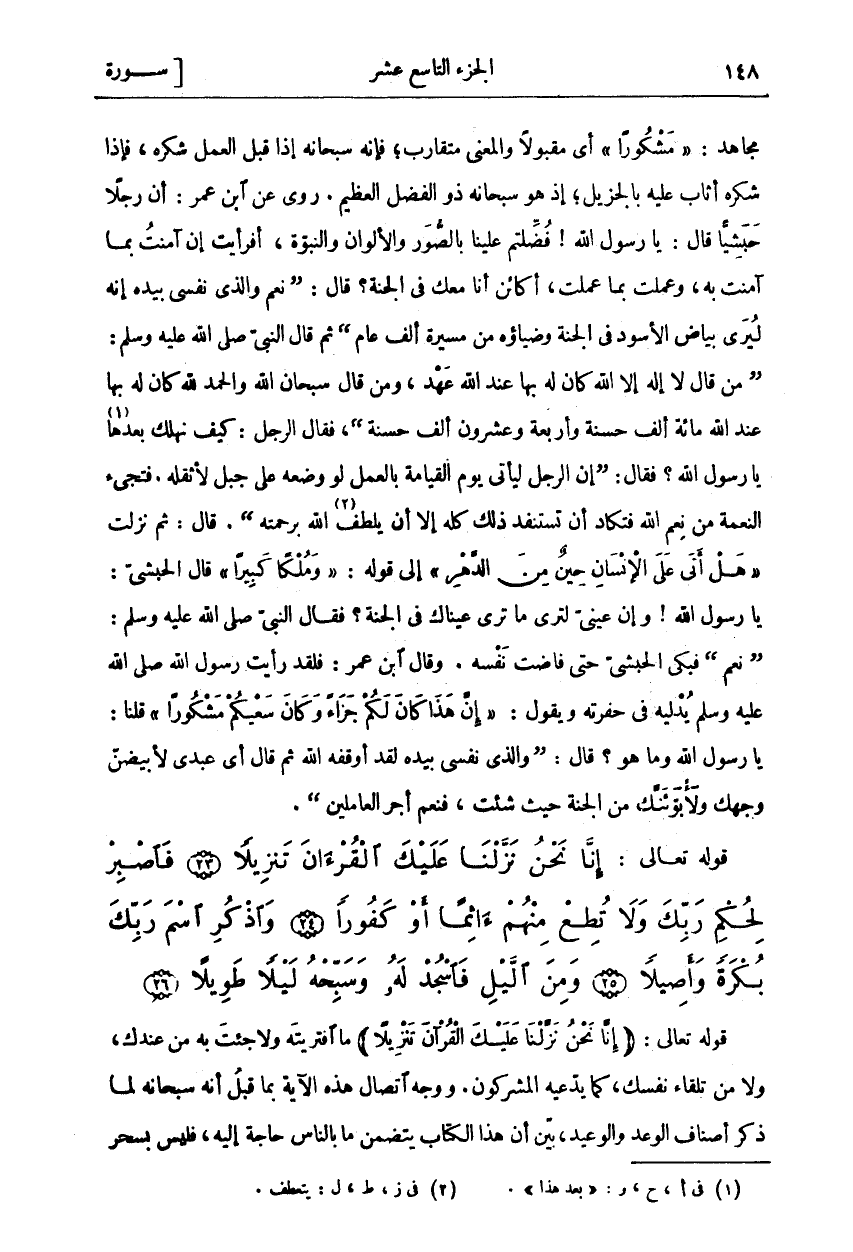 ١٤٨ الجزء التاسع عشر [ ســورة
مجاهد : « مَشْكُورًا » أى مقبولًا والمعنى متقارب؛ فإنه سبحانه إذا قبل العمل شكره ، فإذا
شكره أثاب عليه بالجزيل؛ إذ هو سبحانه ذو الفضل العظيم . روى عن ٱبن عمر : أن رجلًا
حَبَشِيًّا قال : يا رسول الله ! فُضِّلتم علينا بالصُّوَر والألوان والنبوّة ، أفرأيت إن آمنتُ بمـا
آمنت به، وعملت بما عملت، أكائن أنا معك فى الجنة؟ قال : ” نعم والذى نفسى بيده إنه
لَيُرَى بياض الأسود فى الجنة وضياؤه من مسيرة ألف عام “ ثم قال النبىّ صلى الله عليه وسلم :
” من قال لا إله إلا الله كان له بها عند الله عَهْد ، ومن قال سبحان الله والحمد لله كان له بها
عند الله مائة ألف حسنة وأربعة وعشرون ألف حسنة “، فقال الرجل : كيف نهلك بعدها (١)
يا رسول الله ؟ فقال: ”إن الرجل ليأتى يوم القيامة بالعمل لو وضعه على جبل لأثقله . فتجىء
النعمة من نِعم الله فتكاد أن تستنفد ذلك كله إلا أن يلطف (٢) الله برحمته “ . قال : ثم نزلت
« هَـلْ أَتَى عَلَى الْإِنْسَانِ حِينٌ مِنَ الدَّهْرِ » إلى قوله : « وَمُلْكًا كَبِيرًا » قال الحبشىّ :
يا رسول الله ! وإن عينىّ لترى ما ترى عيناك فى الجنة ؟ فقـال النبىّ صلى الله عليه وسلم :
” نعم “ فبكى الحبشىّ حتى فاضت نَفْسه . وقال ٱبن عمر : فلقد رأيت رسول الله صلى الله
عليه وسلم يُدْليه فى حفرته ويقول : « إِنَّ هَذَا كَانَ لَكُمْ جَزَاءً وَكَانَ سَعْيُكُمْ مَشْكُورًا » قلنا :
يا رسول الله وما هو ؟ قال : ” والذى نفسى بيده لقد أوقفه الله ثم قال أى عبدى لأبيضنّ
وجهك ولأبوّئنّك من الجنة حيث شئت ، فنعم أجر العاملين “ .
قوله تعـالى : إِنَّا نَحْنُ نَزَّلْنَـا عَلَيْكَ ٱلْقُرْءَانَ تَنزِيلًا ٢٣ فَٱصْبِرْ
لِحُكْمِ رَبِّكَ وَلَا تُطِعْ مِنْهُمْ ءَاثِمًـا أَوْ كَفُورًا ٢٤ وَٱذْكُرِ ٱسْمَ رَبِّكَ
بُكْرَةً وَأَصِيلًا ٢٥ وَمِنَ ٱلَّيْلِ فَٱسْجُدْ لَهُۥ وَسَبِّحْهُ لَيْلًا طَوِيلًا ٢٦
قوله تعالى : ( إِنَّا نَحْنُ نَزَّلْنَا عَلَيْـكَ الْقُرْآنَ تَنْزِيلًا ) ما ٱفتريتَه ولا جئتَ به من عندك،
ولا من تلقاء نفسك، كما يدّعيه المشركون . ووجه ٱتصال هذه الآية بما قبلُ أنه سبحانه لمـا
ذكر أصناف الوعد والوعيد، بيّن أن هذا الكتاب يتضمن ما بالناس حاجة إليه ، فليس بسحر
(١) فى أ ، ح ، و : « بعد هذا » . (٢) فى ز ، ط ، ل : يتعطف .